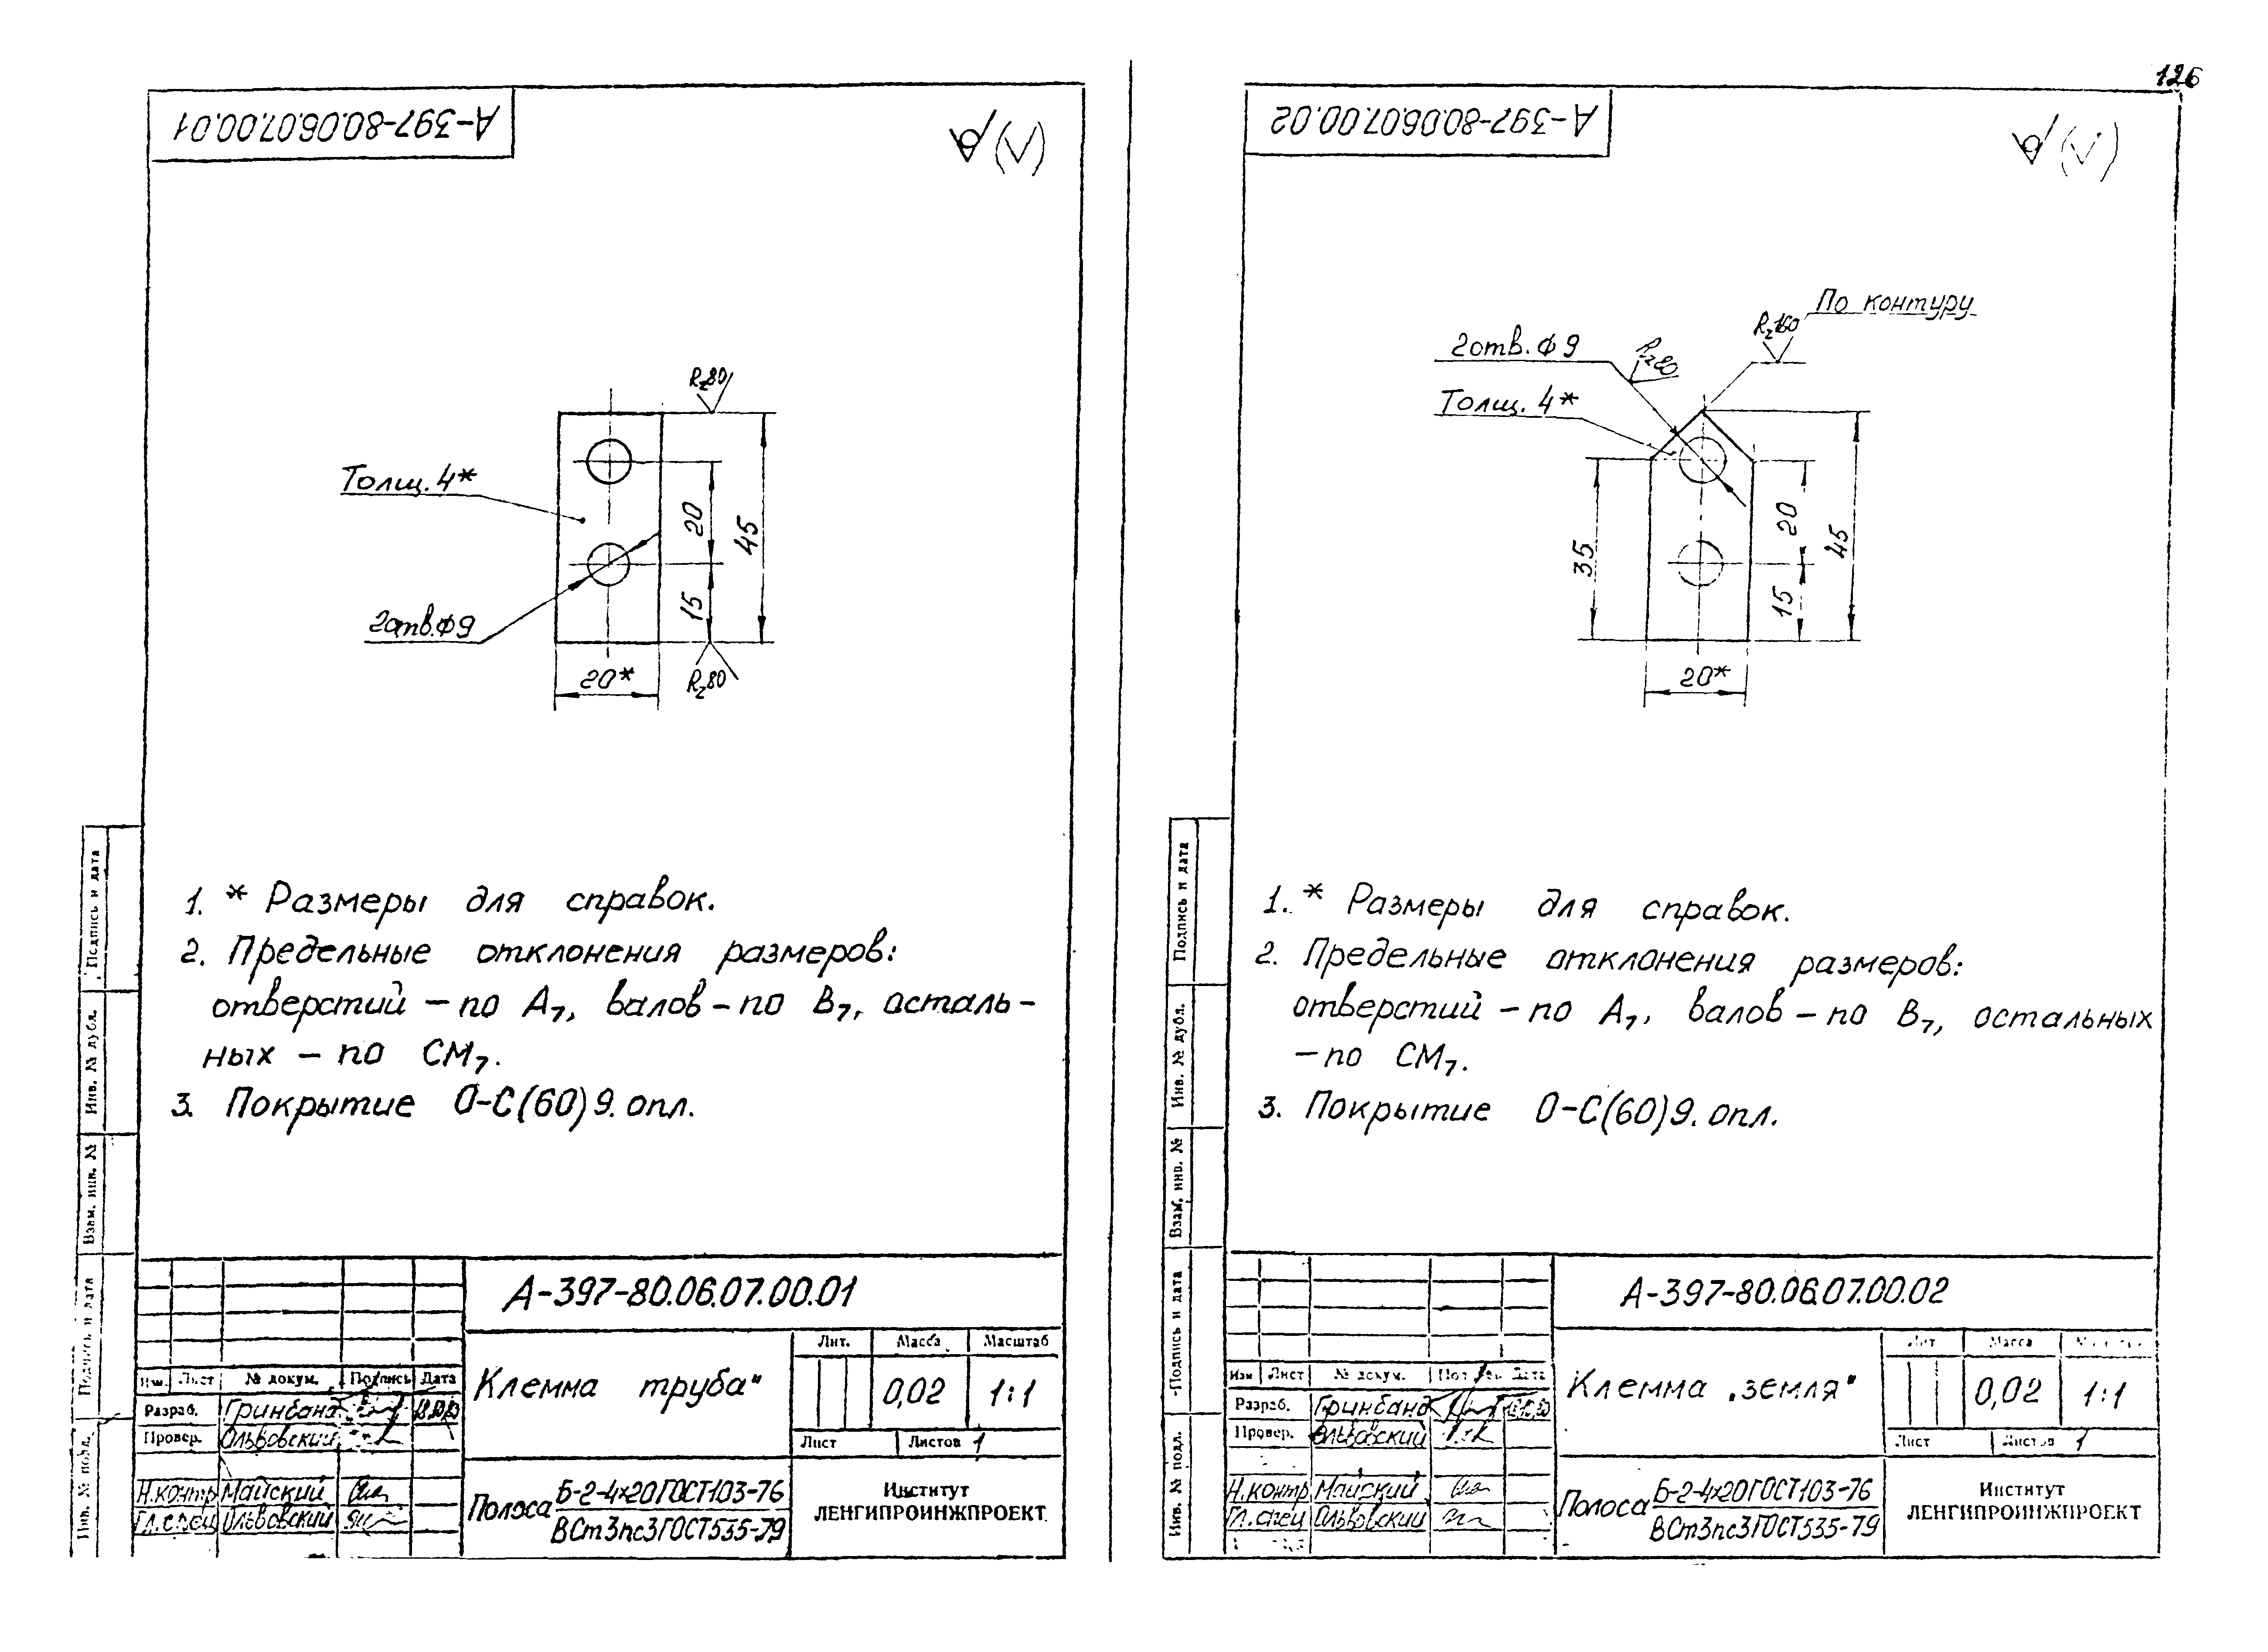 126
А-397-80.06.07.00.01
(√)
Rz80
Толщ. 4*
20
45
15
2отв. Ф9
20*
Rz80
1. * Размеры для справок.
2. Предельные отклонения размеров:
отверстий – по А7, валов – по В7, осталь-
ных – по СМ7.
3. Покрытие О-С(60)9. опл.
Подпись и дата
Инв. № дубл.
Взам. инв. №
Подпись и дата
Инв. № подл.
А-397-80.06.07.00.01
Изм. Лист № докум. Подпись Дата
Разраб. Гринбанд
Провер. Ольвовский
Н.контр Майский
Гл.спец Ольвовский
Клемма труба"
Лит. Масса Масштаб
0,02 1:1
Лист Листов 1
Полоса Б-2-4×20 ГОСТ103-76
ВСт3пс3 ГОСТ535-79
Институт
ЛЕНГИПРОИНЖПРОЕКТ
А-397-80.06.07.00.02
(√)
По контуру
Rz160
2отв. Ф9
Rz80
Толщ. 4*
35
20
45
15
20*
1. * Размеры для справок.
2. Предельные отклонения размеров:
отверстий – по А7, валов – по В7, остальных
– по СМ7.
3. Покрытие О-С(60)9. опл.
Подпись и дата
Инв. № дубл.
Взам. инв. №
Подпись и дата
Инв. № подл.
А-397-80.06.07.00.02
Изм Лист № докум. Дата
Разраб. Гринбанд
Провер. Ольвовский
Н.контр Майский
Гл.спец Ольвовский
Клемма „земля"
Лит Масса
0,02 1:1
Лист Листов 1
Полоса Б-2-4×20 ГОСТ103-76
ВСт3пс3 ГОСТ535-79
Институт
ЛЕНГИПРОИНЖПРОЕКТ